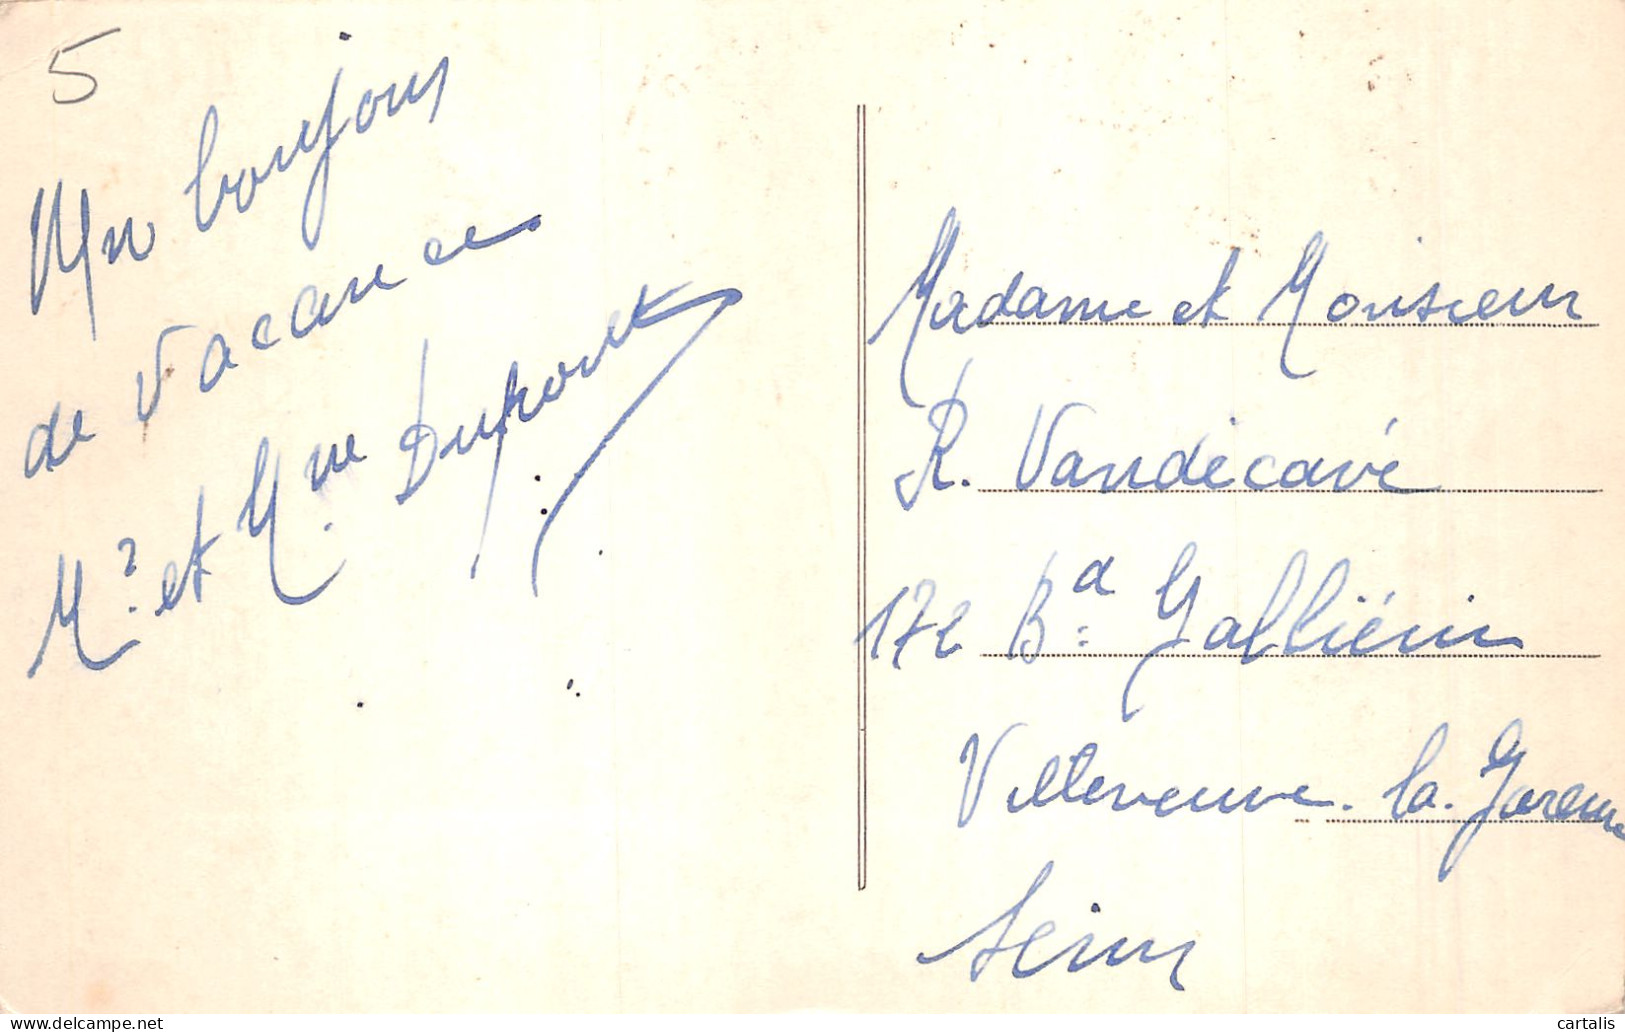 5
Un bonjour
de Vacances
Mr. et Mme Dupont
Madame et Monsieur
R. Vandécavé
172 Bd. Galliéni
Villeneuve. la. Garenne
Seine
www.delcampe.net
cartalis